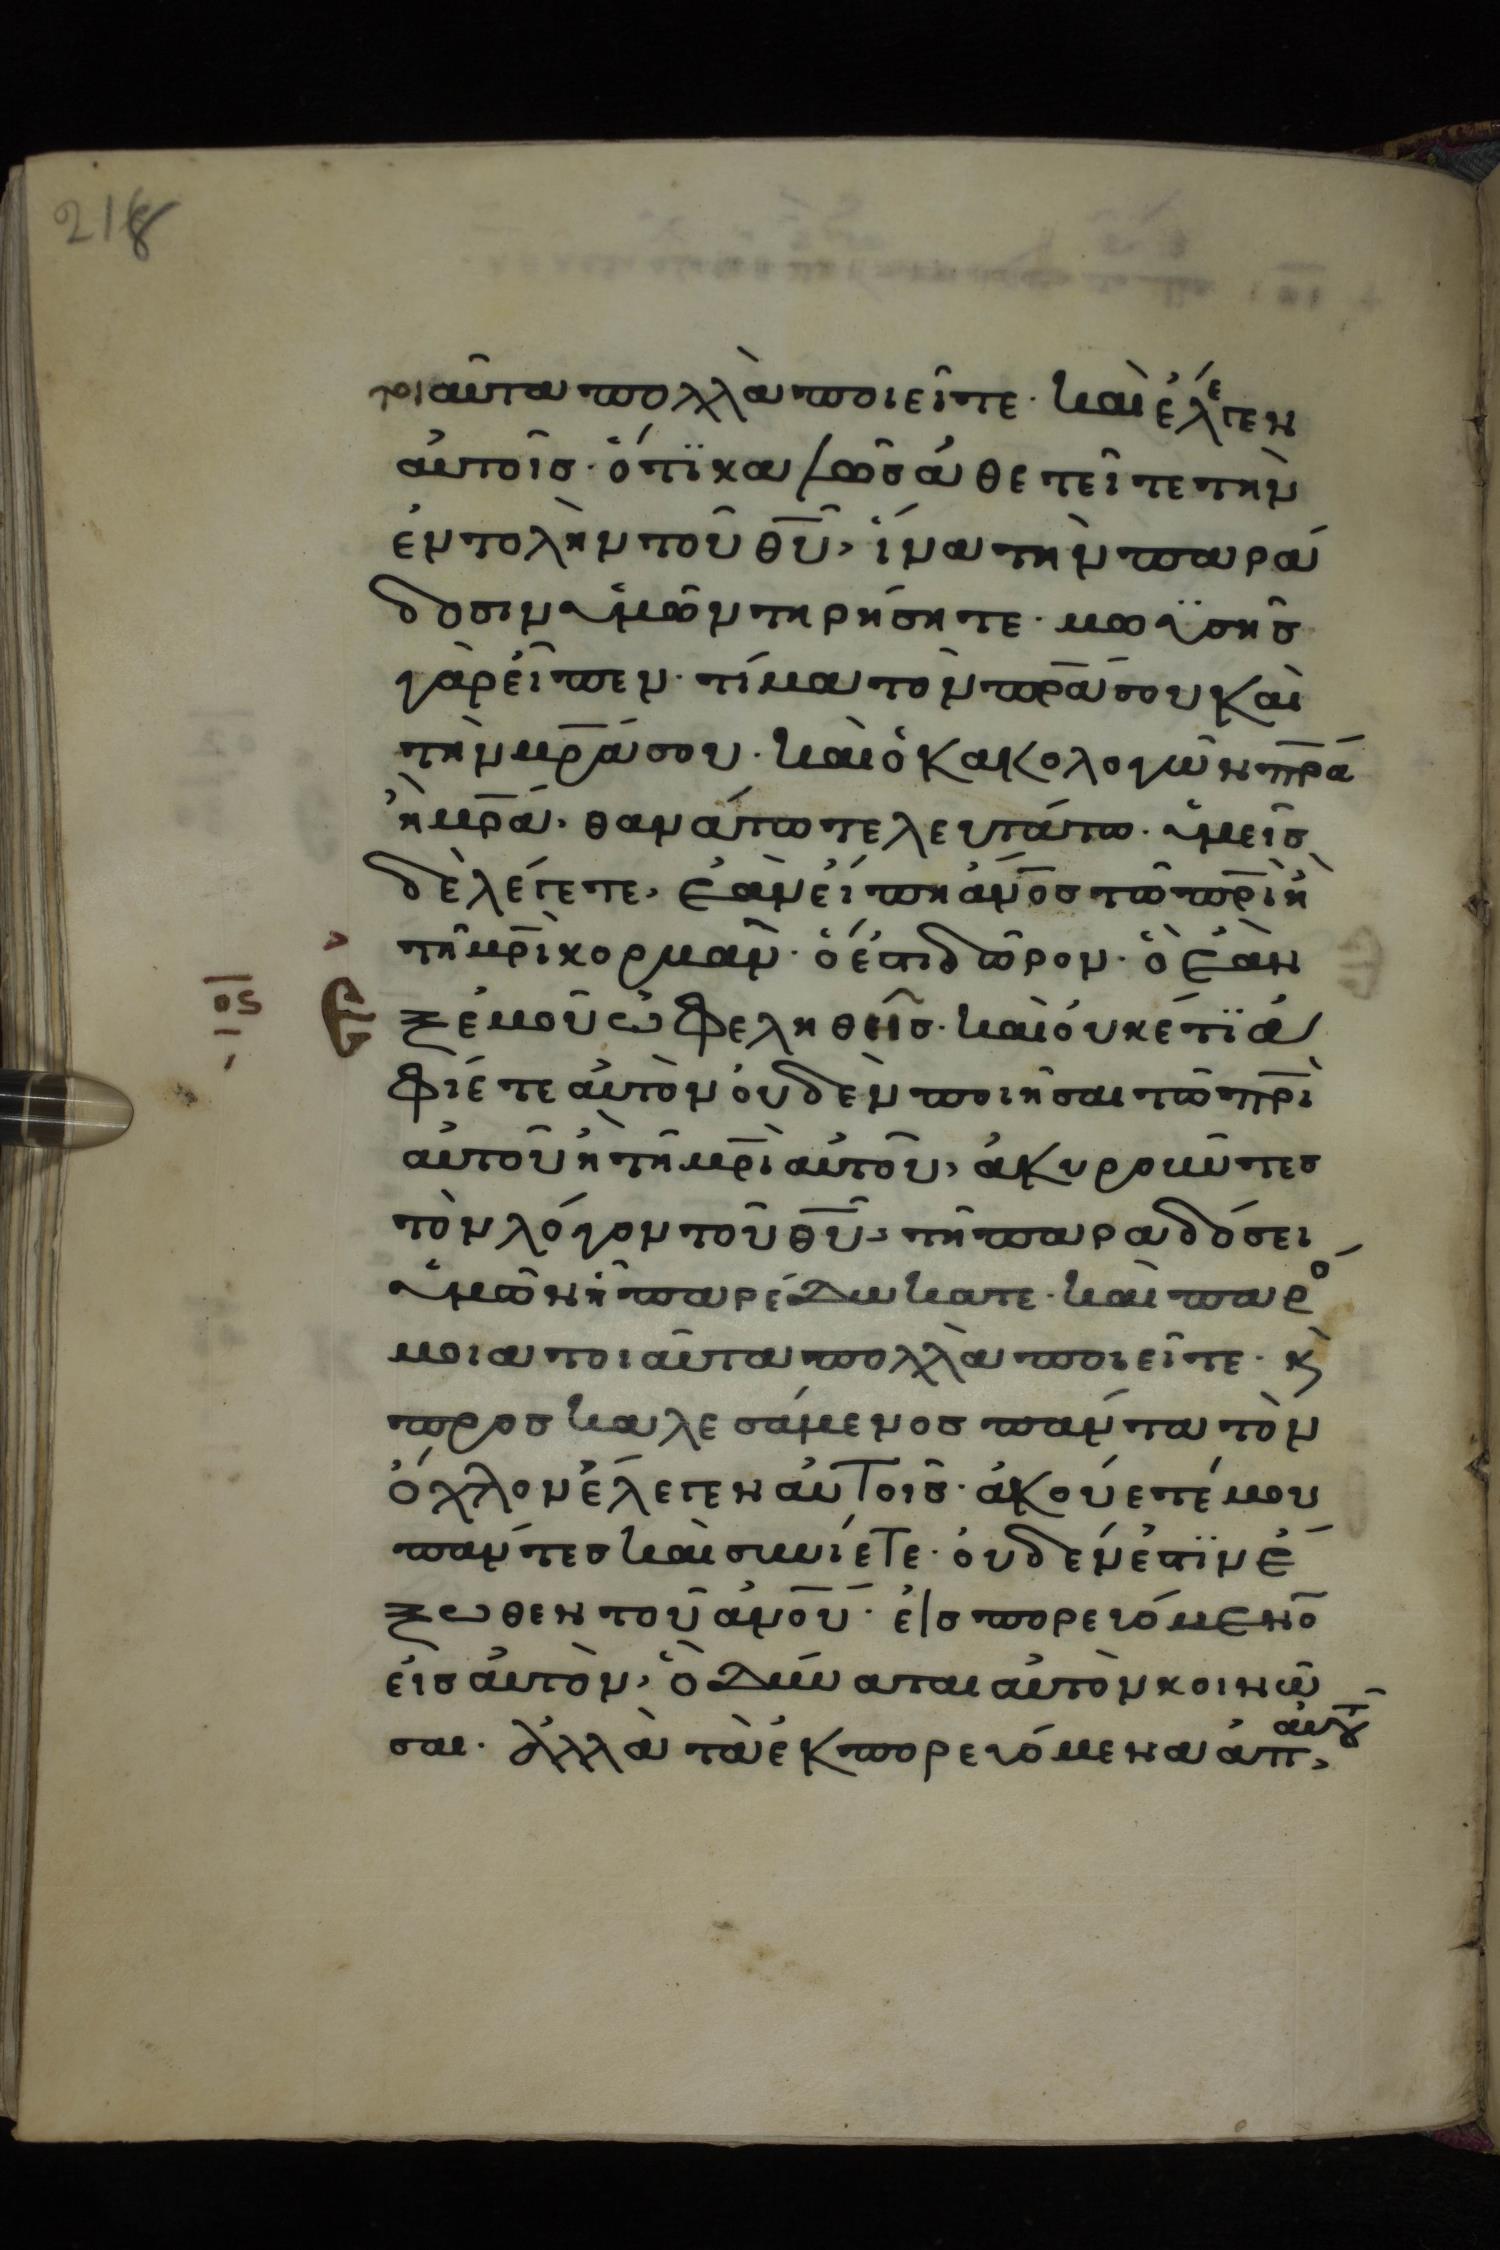 218
τοιαῦτα πολλὰ ποιεῖτε· καὶ ἔλεγεν
αὐτοῖσ· ὅτϊ καλῶσ ἀθετεῖτε τὴν
ἐντολὴν τοῦ θ̅υ̅, ἵνα τὴν παρά
δοσιν ὑμῶν τηρήσητε· μωϋσῆσ
γὰρ εἶπεν· τίμα τὸν π̅ρ̅α̅ σου καὶ
τὴν μ̅ρ̅α̅ σου· καὶ ὁ κακολογῶν π̅ρ̅α̅
ἢ μ̅ρ̅α̅· θανάτω τελευτάτω· ὑμεῖσ
δὲ λέγετε, ἐὰν εἴπη ἄν̅ο̅σ τῶ π̅ρ̅ὶ ἢ
τῆ μ̅ρ̅ὶ κορμᾶν· ὅ ἐστι δῶρον· ὃ ἐὰν
ξ ἐμοῦ ὠφεληθεῖσ· καὶ οὐκέτϊ ἀ
φίετε αὐτὸν οὐδὲν ποιῆσαι τῶ π̅ρ̅ὶ
αὐτοῦ ἢ τῆ μ̅ρ̅ὶ αὐτοῦ, ἀκυροῦντεσ
τὸν λόγον τοῦ θ̅υ̅, τῆ παραδόσει
ὑμῶν ἧ παρεδώκατε· καὶ παρό
μοια τοιαῦτα πολλὰ ποιεῖτε· κ̀
προσκαλεσάμενοσ πάντα τὸν
ὄχλον ἔλεγεν αὐτοῖσ· ἀκούετέ μου
πάντεσ καὶ συνίετε· οὐδέν ἐστϊν ἔ
ξωθεν τοῦ ἀν̅ο̅ύ· εἰσπορευόμενο̅
εἰσ αὐτὸν, ὃ δύναται αὐτὸν κοινῶ
σαι· ἀλλὰ τὰ ἐκπορευόμενα ἀπ, αὐτοῦ